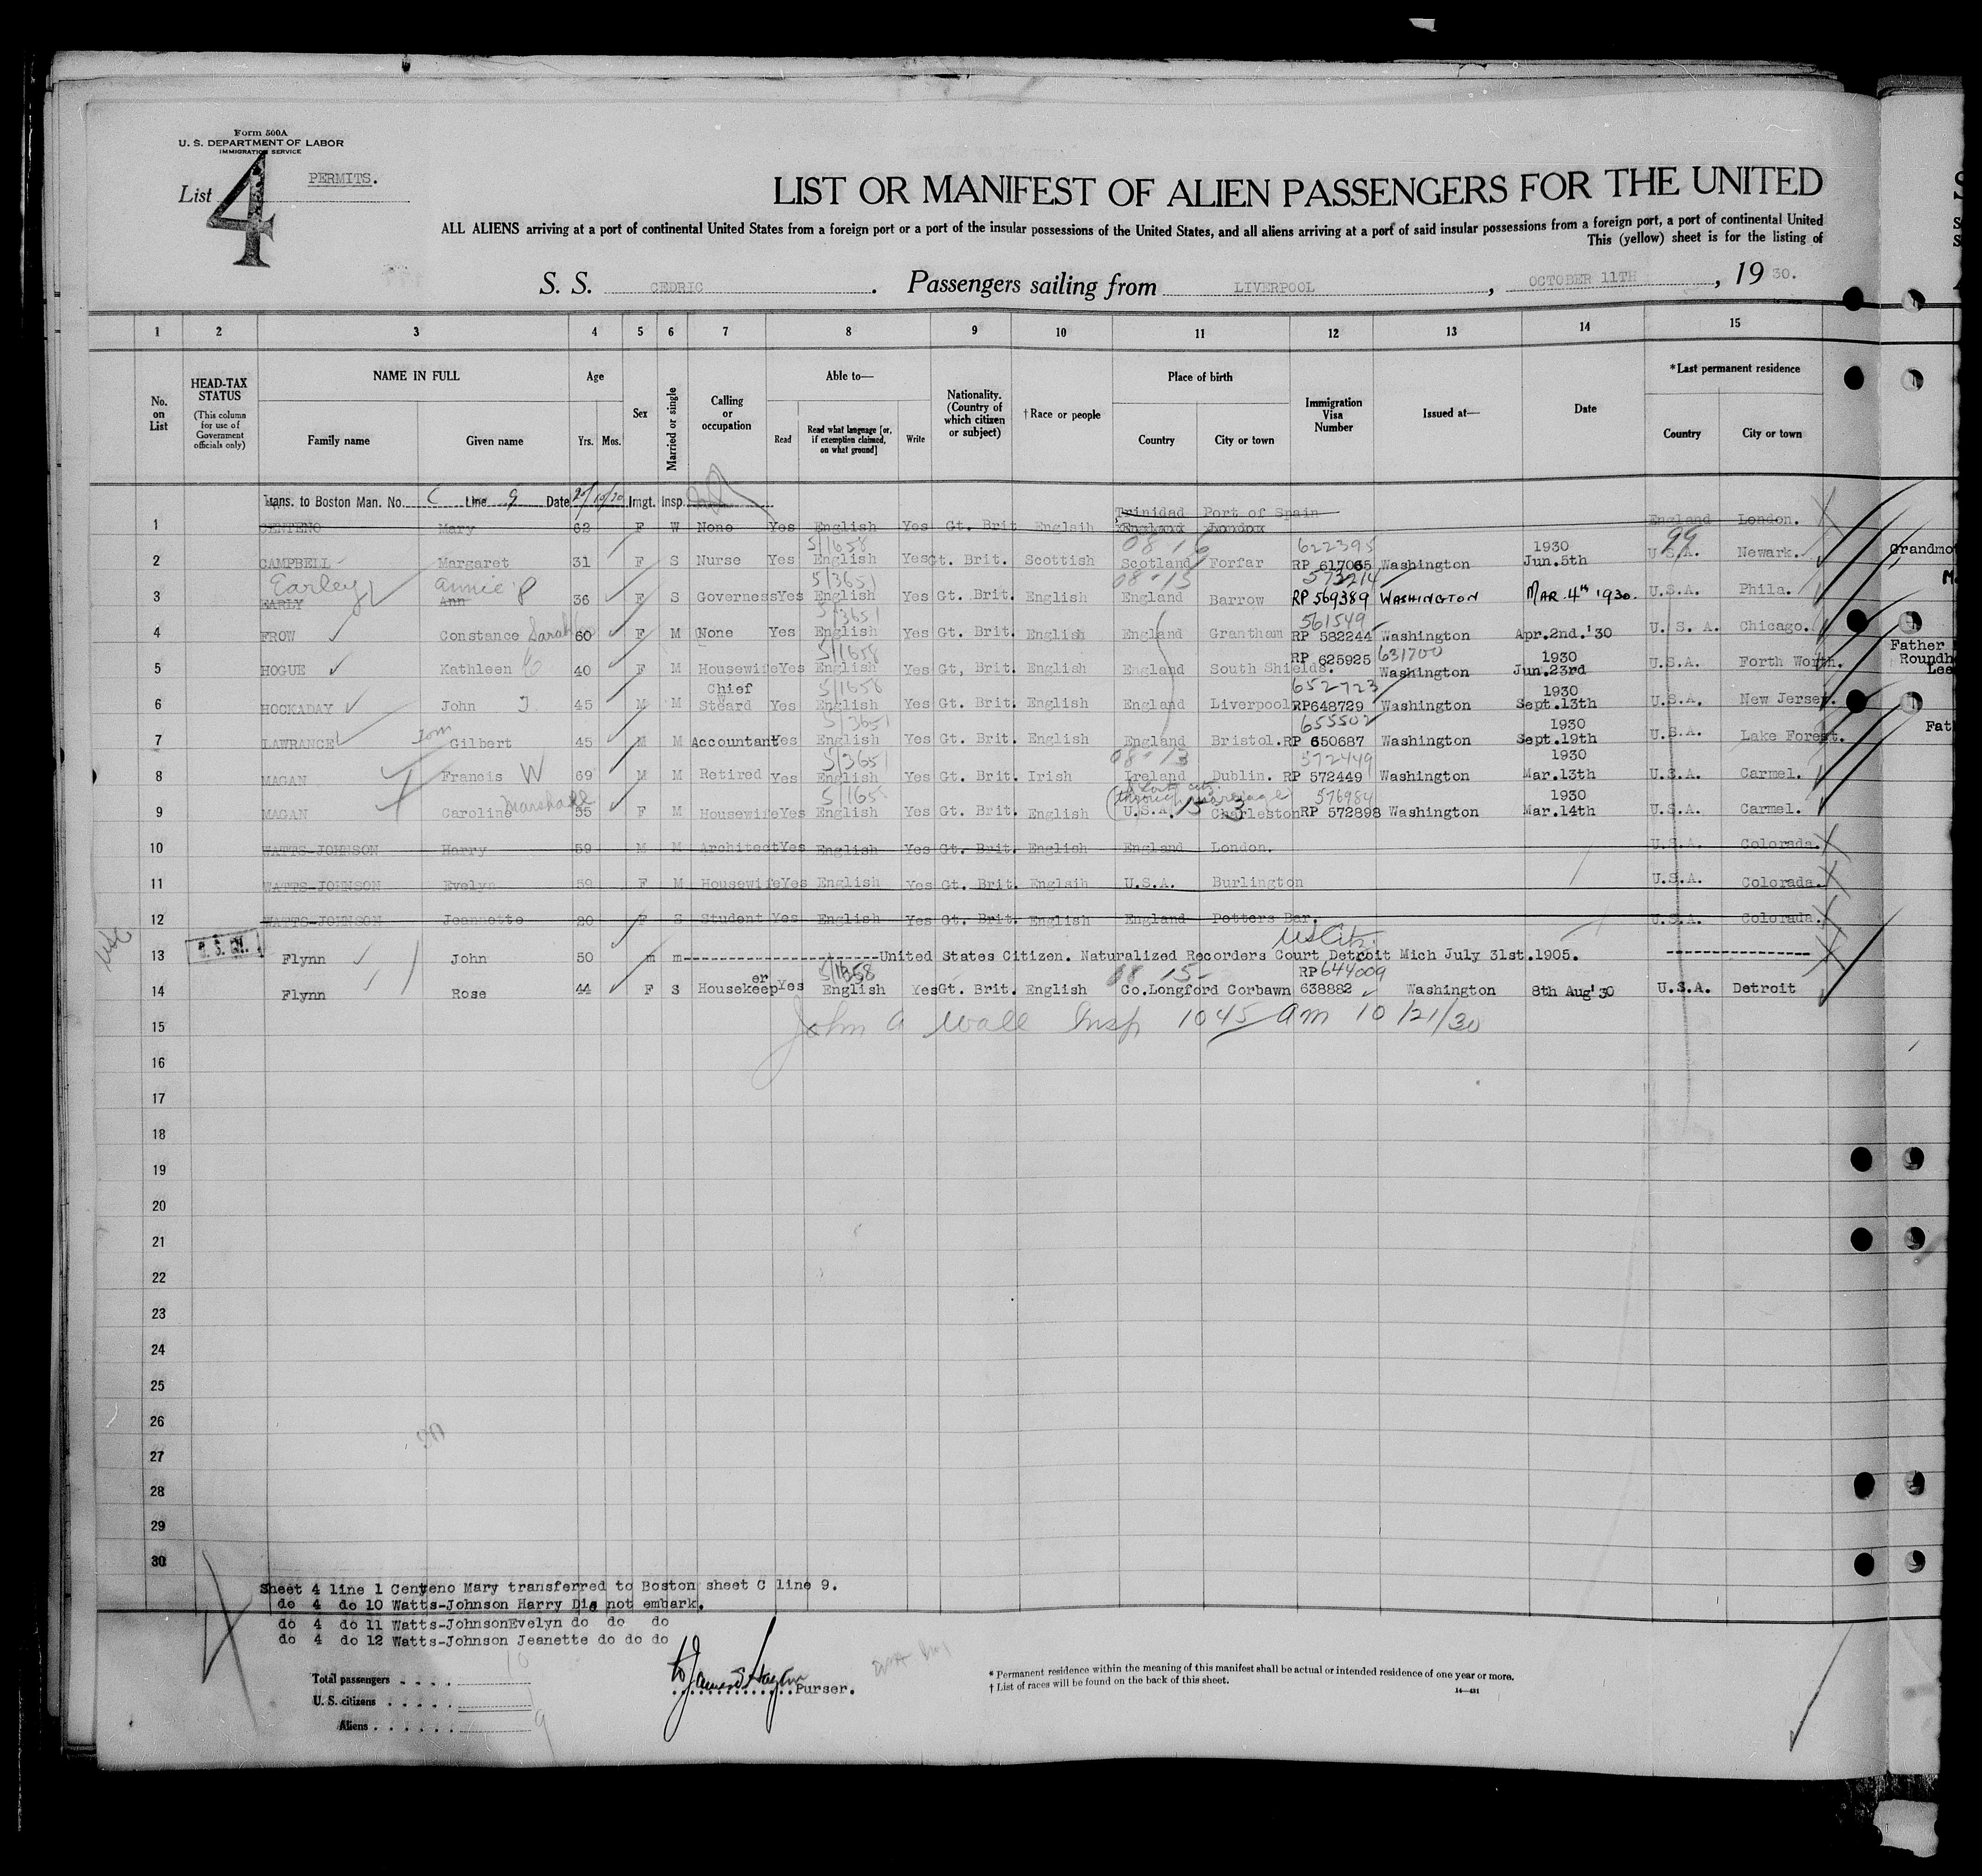 Form 500A
U. S. DEPARTMENT OF LABOR
IMMIGRATION SERVICE
List 4
PERMITS.
LIST OR MANIFEST OF ALIEN PASSENGERS FOR THE UNITED
ALL ALIENS arriving at a port of continental United States from a foreign port or a port of the insular possessions of the United States, and all aliens arriving at a port of said insular possessions from a foreign port, a port of continental United
This (yellow) sheet is for the listing of
S. S. CEDRIC. Passengers sailing from LIVERPOOL, OCTOBER 11TH, 1930.
1 2 3 4 5 6 7 8 9 10 11 12 13 14 15
No. on List
HEAD-TAX STATUS
(This column for use of Government officials only)
NAME IN FULL
Family name Given name
Age
Yrs. Mos.
Sex
Married or single
Calling or occupation
Able to—
Read Read what language [or, if exemption claimed, on what ground] Write
Nationality. (Country of which citizen or subject)
†Race or people
Place of birth
Country City or town
Immigration Visa Number
Issued at—
Date
*Last permanent residence
Country City or town
Trans. to Boston Man. No. C Line 9 Date 20/10/30 Imgt. Insp.
Trinidad Port of Spain
1 CENTENO Mary 62 F W None Yes English Yes Gt. Brit Englsih England London England London.
5/1658 08-15 622395 1930 99
2 CAMPBELL Margaret 31 F S Nurse Yes English Yes Gt. Brit. Scottish Scotland Forfar RP 617065 Washington Jun.5th U.S.A. Newark.
Earley Annie P 5/3651 08-15 573214
3 EARLY Ann 36 F S Governess Yes English Yes Gt. Brit. English England Barrow RP 569389 WASHINGTON MAR. 4th 1930. U.S.A. Phila.
5/3651 561549
4 FROW Constance Sarah 60 F M None Yes English Yes Gt. Brit. English England Grantham RP 582244 Washington Apr.2nd.'30 U. S. A. Chicago.
5/1658 631700 1930
5 HOGUE Kathleen 40 F M Housewife Yes English Yes Gt, Brit. English England South Shields. RP 625925 Washington Jun.23rd U.S.A. Forth Worth.
Chief 5/1658 652723 1930
6 HOCKADAY John J 45 M M Steward Yes English Yes Gt. Brit. English England Liverpool RP648729 Washington Sept.13th U.S.A. New Jersey.
Tom 5/3651 655502 1930
7 LAWRANCE Gilbert 45 M M Accountant Yes English Yes Gt. Brit. English England Bristol. RP 650687 Washington Sept.19th U.S.A. Lake Forest.
5/3651 08-13 572449 1930
8 MAGAN Francis W 69 M M Retired Yes English Yes Gt. Brit. Irish Ireland Dublin. RP 572449 Washington Mar.13th U.S.A. Carmel.
Marshall through marriage 15 3 576984 1930
9 MAGAN Caroline 55 F M Housewife Yes English Yes Gt. Brit. English U.S.A. Charleston RP 572898 Washington Mar.14th U.S.A. Carmel.
10 WATTS-JOHNSON Harry 59 M M Architect Yes English Yes Gt. Brit. English England London. U.S.A. Colorada.
11 WATTS-JOHNSON Evelyn 59 F M Housewife Yes English Yes Gt. Brit. Englsih U.S.A. Burlington U.S.A. Colorada.
12 WATTS-JOHNSON Jeannette 20 F S Student Yes English Yes Gt. Brit. English England Potters Bar. U.S.A. Colorada.
US Citz.
13 Flynn John 50 m m United States Citizen. Naturalized Recorders Court Detroit Mich July 31st.1905.
5/1658 08 15 RP 644009
14 Flynn Rose 44 F S Housekeeper Yes English Yes Gt. Brit. English Co.Longford Corbawn 638882 Washington 8th Aug'30 U.S.A. Detroit
John A Wall Insp 10 45 am 10/21/30
15
16
17
18
19
20
21
22
23
24
25
26
27
28
29
30
Sheet 4 line 1 Centeno Mary transferred to Boston sheet C line 9.
do 4 do 10 Watts-Johnson Harry Did not embark.
do 4 do 11 Watts-JohnsonEvelyn do do do
do 4 do 12 Watts-Johnson Jeanette do do do
Total passengers 10
U. S. citizens
Aliens 9
Purser.
* Permanent residence within the meaning of this manifest shall be actual or intended residence of one year or more.
† List of races will be found on the back of this sheet.
14—431
Grandmo
Father
Roundh
Lee
Fat